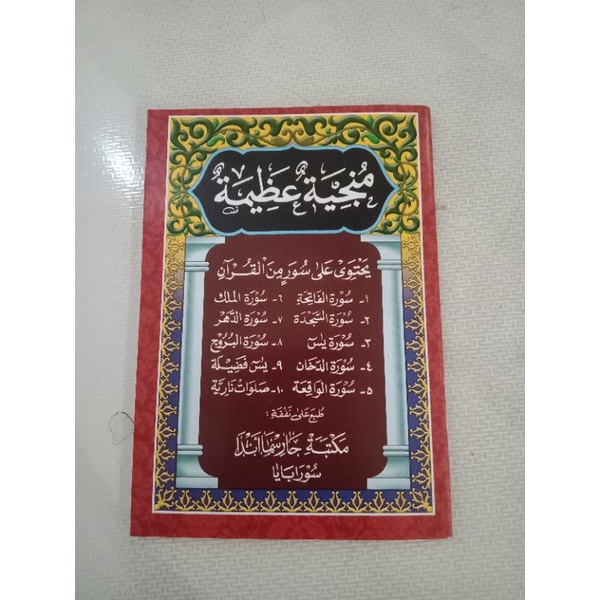 مُنْجِيَةٌ عَظِيمَةٌ
يَحْتَوِىْ عَلَى سُوَرٍ مِنَ الْقُرْآنِ
١- سُوْرَة الفَاتِحَة ٦- سُوْرَة الملك
٢- سُوْرَة السَّجْدَة ٧- سُوْرَة الدَّهْر
٣- سُوْرَة يٰسٓ ٨- سُوْرَة البُرُوْج
٤- سُوْرَة الدخَان ٩- يٰسٓ فَضِيْلَة
٥- سُوْرَة الوَاقِعَة ١٠- صَلَوَاتْ نَارِيَّة
طُبِعَ عَلَى نَفَقَةِ :
مَكْتَبَة جَارِسْمَا اَنْدَا
سُوْرَابَايَا